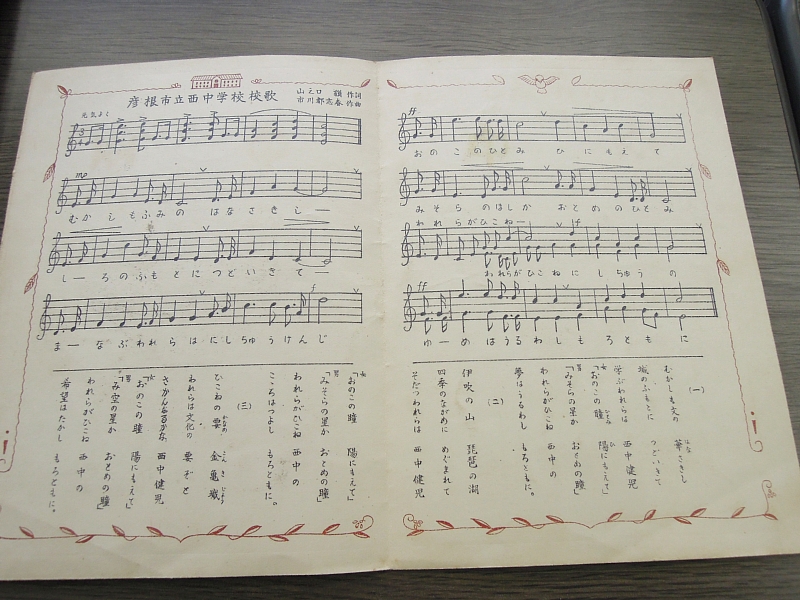 彦根市立西中学校校歌
山之口 作詞
市川都志春 作曲
元気よく
mp
むかしもふみの はなさきしー
しーろのふもとにつどいきてー
f
まーなぶわれらはにしちゅうけんじ
ff
おのこのひとみ ひにもえて
みそらのほしか おとめのひとみ
われらがひこねー
f
われらがひこねに しちゅうの
ff
ゆーめはうるわしもろともに
(一)
むかしも文の 華さきし
はな
城のふもとに つどいきて
学ぶわれらは 西中健児
男
「おのこの瞳 陽にもえて」
ひとみ ひ
「みそらの星か おとめの瞳」
われらがひこね 西中の
夢はうるわし もろともに。
(二)
伊吹の山 琵琶の湖
四季のながめに めぐまれて
そだつわれらは 西中健児
女
「おのこの瞳 陽にもえて」
男
「みそらの星か おとめの瞳」
われらがひこね 西中の
こころはつよし もろともに。
(三)
ひこねの要 金亀城
かなめ こんきじょう
われらは文化の 要ぞと
さかんなるかな 西中健児
女
「おのこの瞳 陽にもえて」
男
「み空の星か おとめの瞳」
われらがひこね 西中の
希望はたかし もろともに。